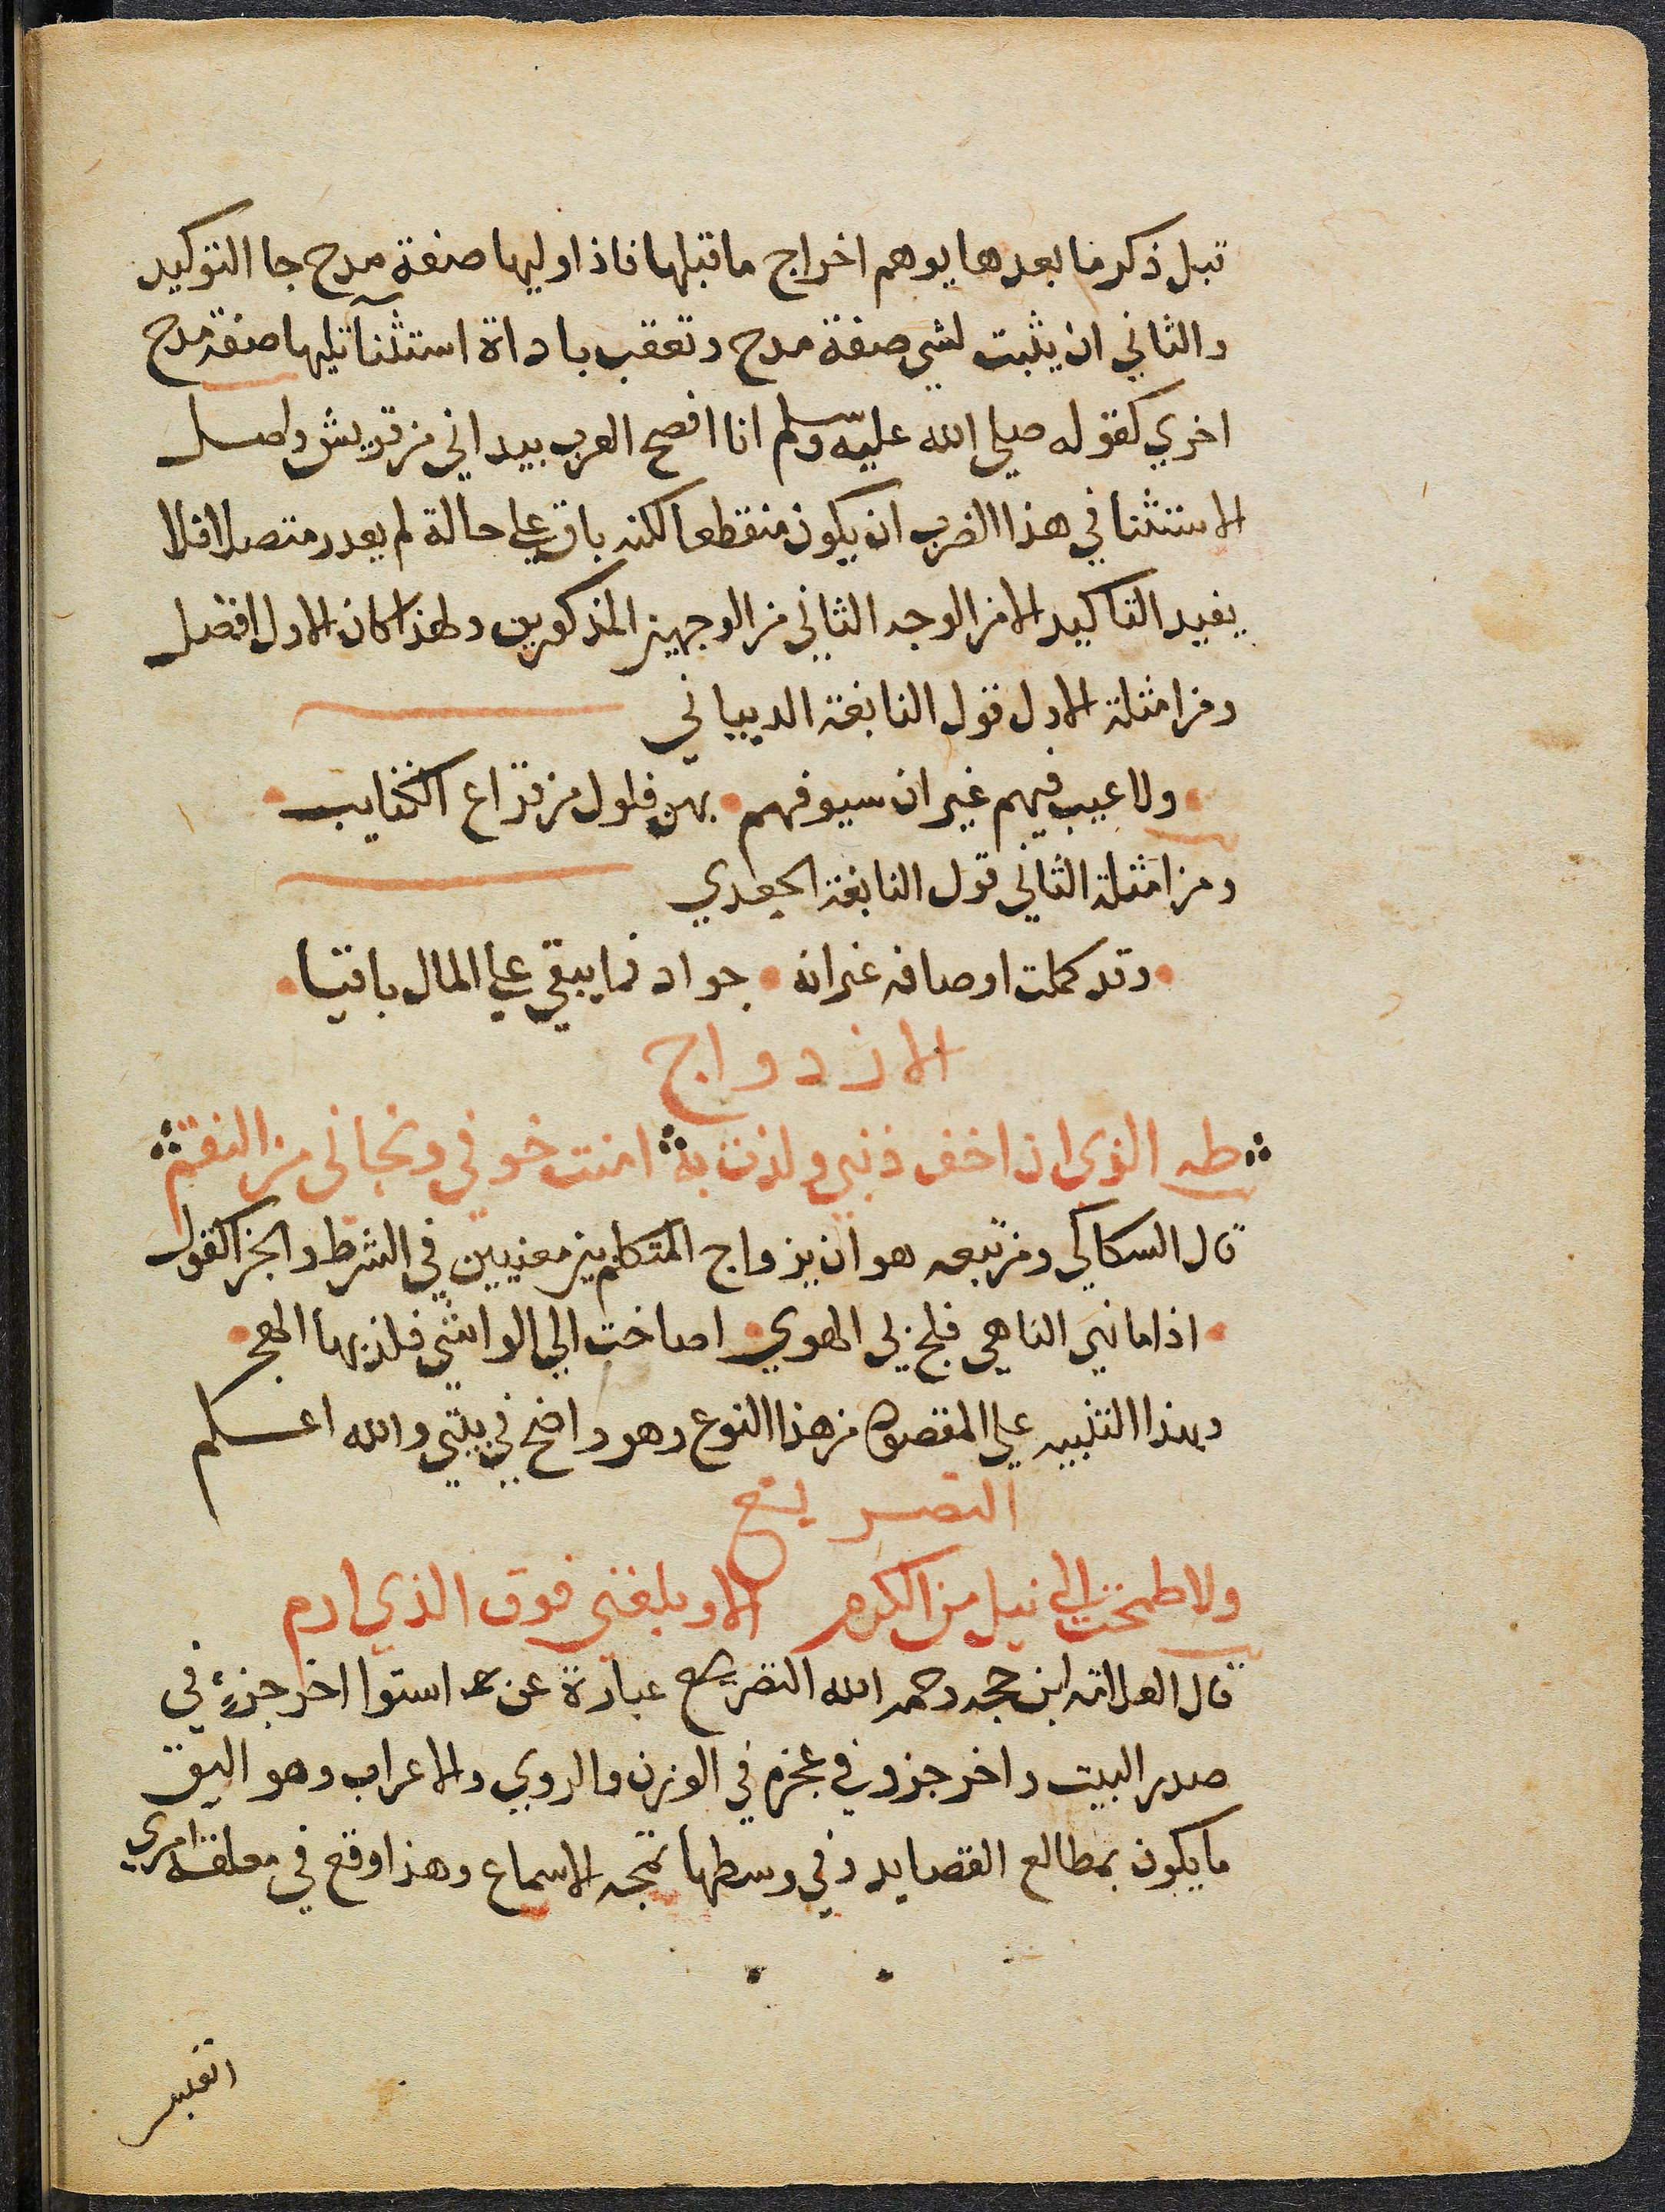 قبل ذكر ما بعدها يوهم اخراج ما قبلها فاذا وليها صفة مدح جا التوكيد
والثاني ان يثبت لشي صفة مدح وتعقب باداة استثنآ تليها صفة مدح
اخري كقوله صلي الله عليه وسلم انا افصح العرب بيد اني من قريش واصل
الاستثنا في هذا الضرب ان يكون منقطعا لكنه باق علي حالة لم يعدر متصلا فلا
يفيد التاكيد الا من الوجه الثاني من الوجهين المذكورين ولهذا كان الاول افضل
ومن امثلة الاول قول النابغة الدبياني
ولا عيب فيهم غير ان سيوفهم بهن فلول من قراع الكتايب
ومن امثلة الثاني قول النابغة الجعدي
وقد كملت اوصافه غير انه جواد فما يبقي علي المال باقيا
الازدواج
طه الذي ان اخف ذنبي ولذت به امنت خوفي ونجاني من النقم
قال السكاكي ومن تبعه هو ان يزواج المتكلم بين معنيين في الشرط والجزا كقول
اذا ما نهي الناهي فلج بي الهوي اصاخت الي الواشي فلذ بها الهجر
وبهذا التنبيه علي المقصود من هذا النوع وهو واضح في بيتي والله اعلم
التصريع
ولا طمحت الي نيل من الكرم الا وبلغني فوق الذي ارم
قال العلامة ابن حجه رحمه الله التصريع عبارة عن استوا اخر جزء في
صدر البيت واخر جزو في عجزه في الوزن والروي والاعراب وهو اليق
ما يكون بمطالع القصايد وفي وسطها تمجه الاسماع وهذا وقع في معلقة امري
القيس